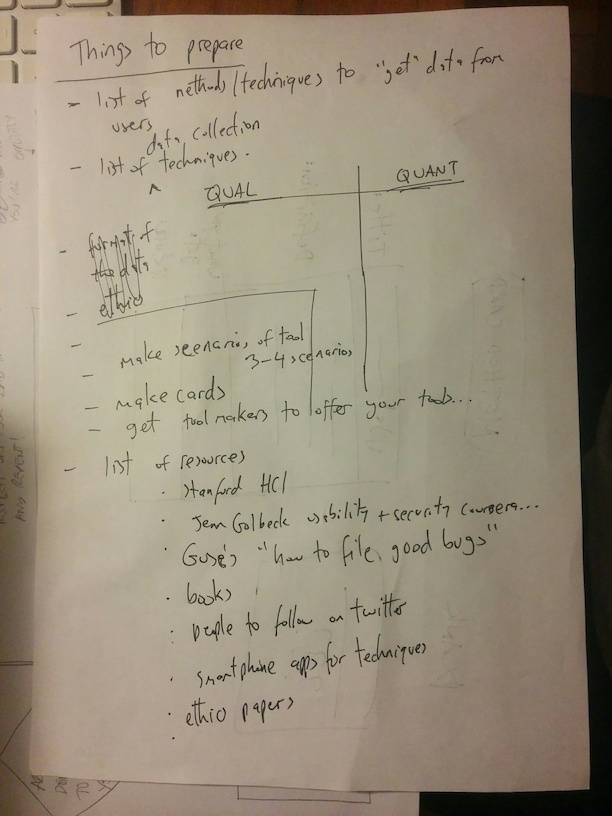 Things to prepare
- list of methods/techniques to "get" data from
users
data collection
- list of ^ techniques.
QUAL QUANT
- format of
the data
- ethics
-
- make scenarios of tool
3-4 scenarios
- make cards
- get tool makers to offer your tools...
- list of resources
· Stanford HCI
· Jenn Golbeck usability + security coursera...
· "how to file good bugs"
· books
· people to follow on twitter
· smartphone apps for techniques
· ethics papers
·
AND REPENT!